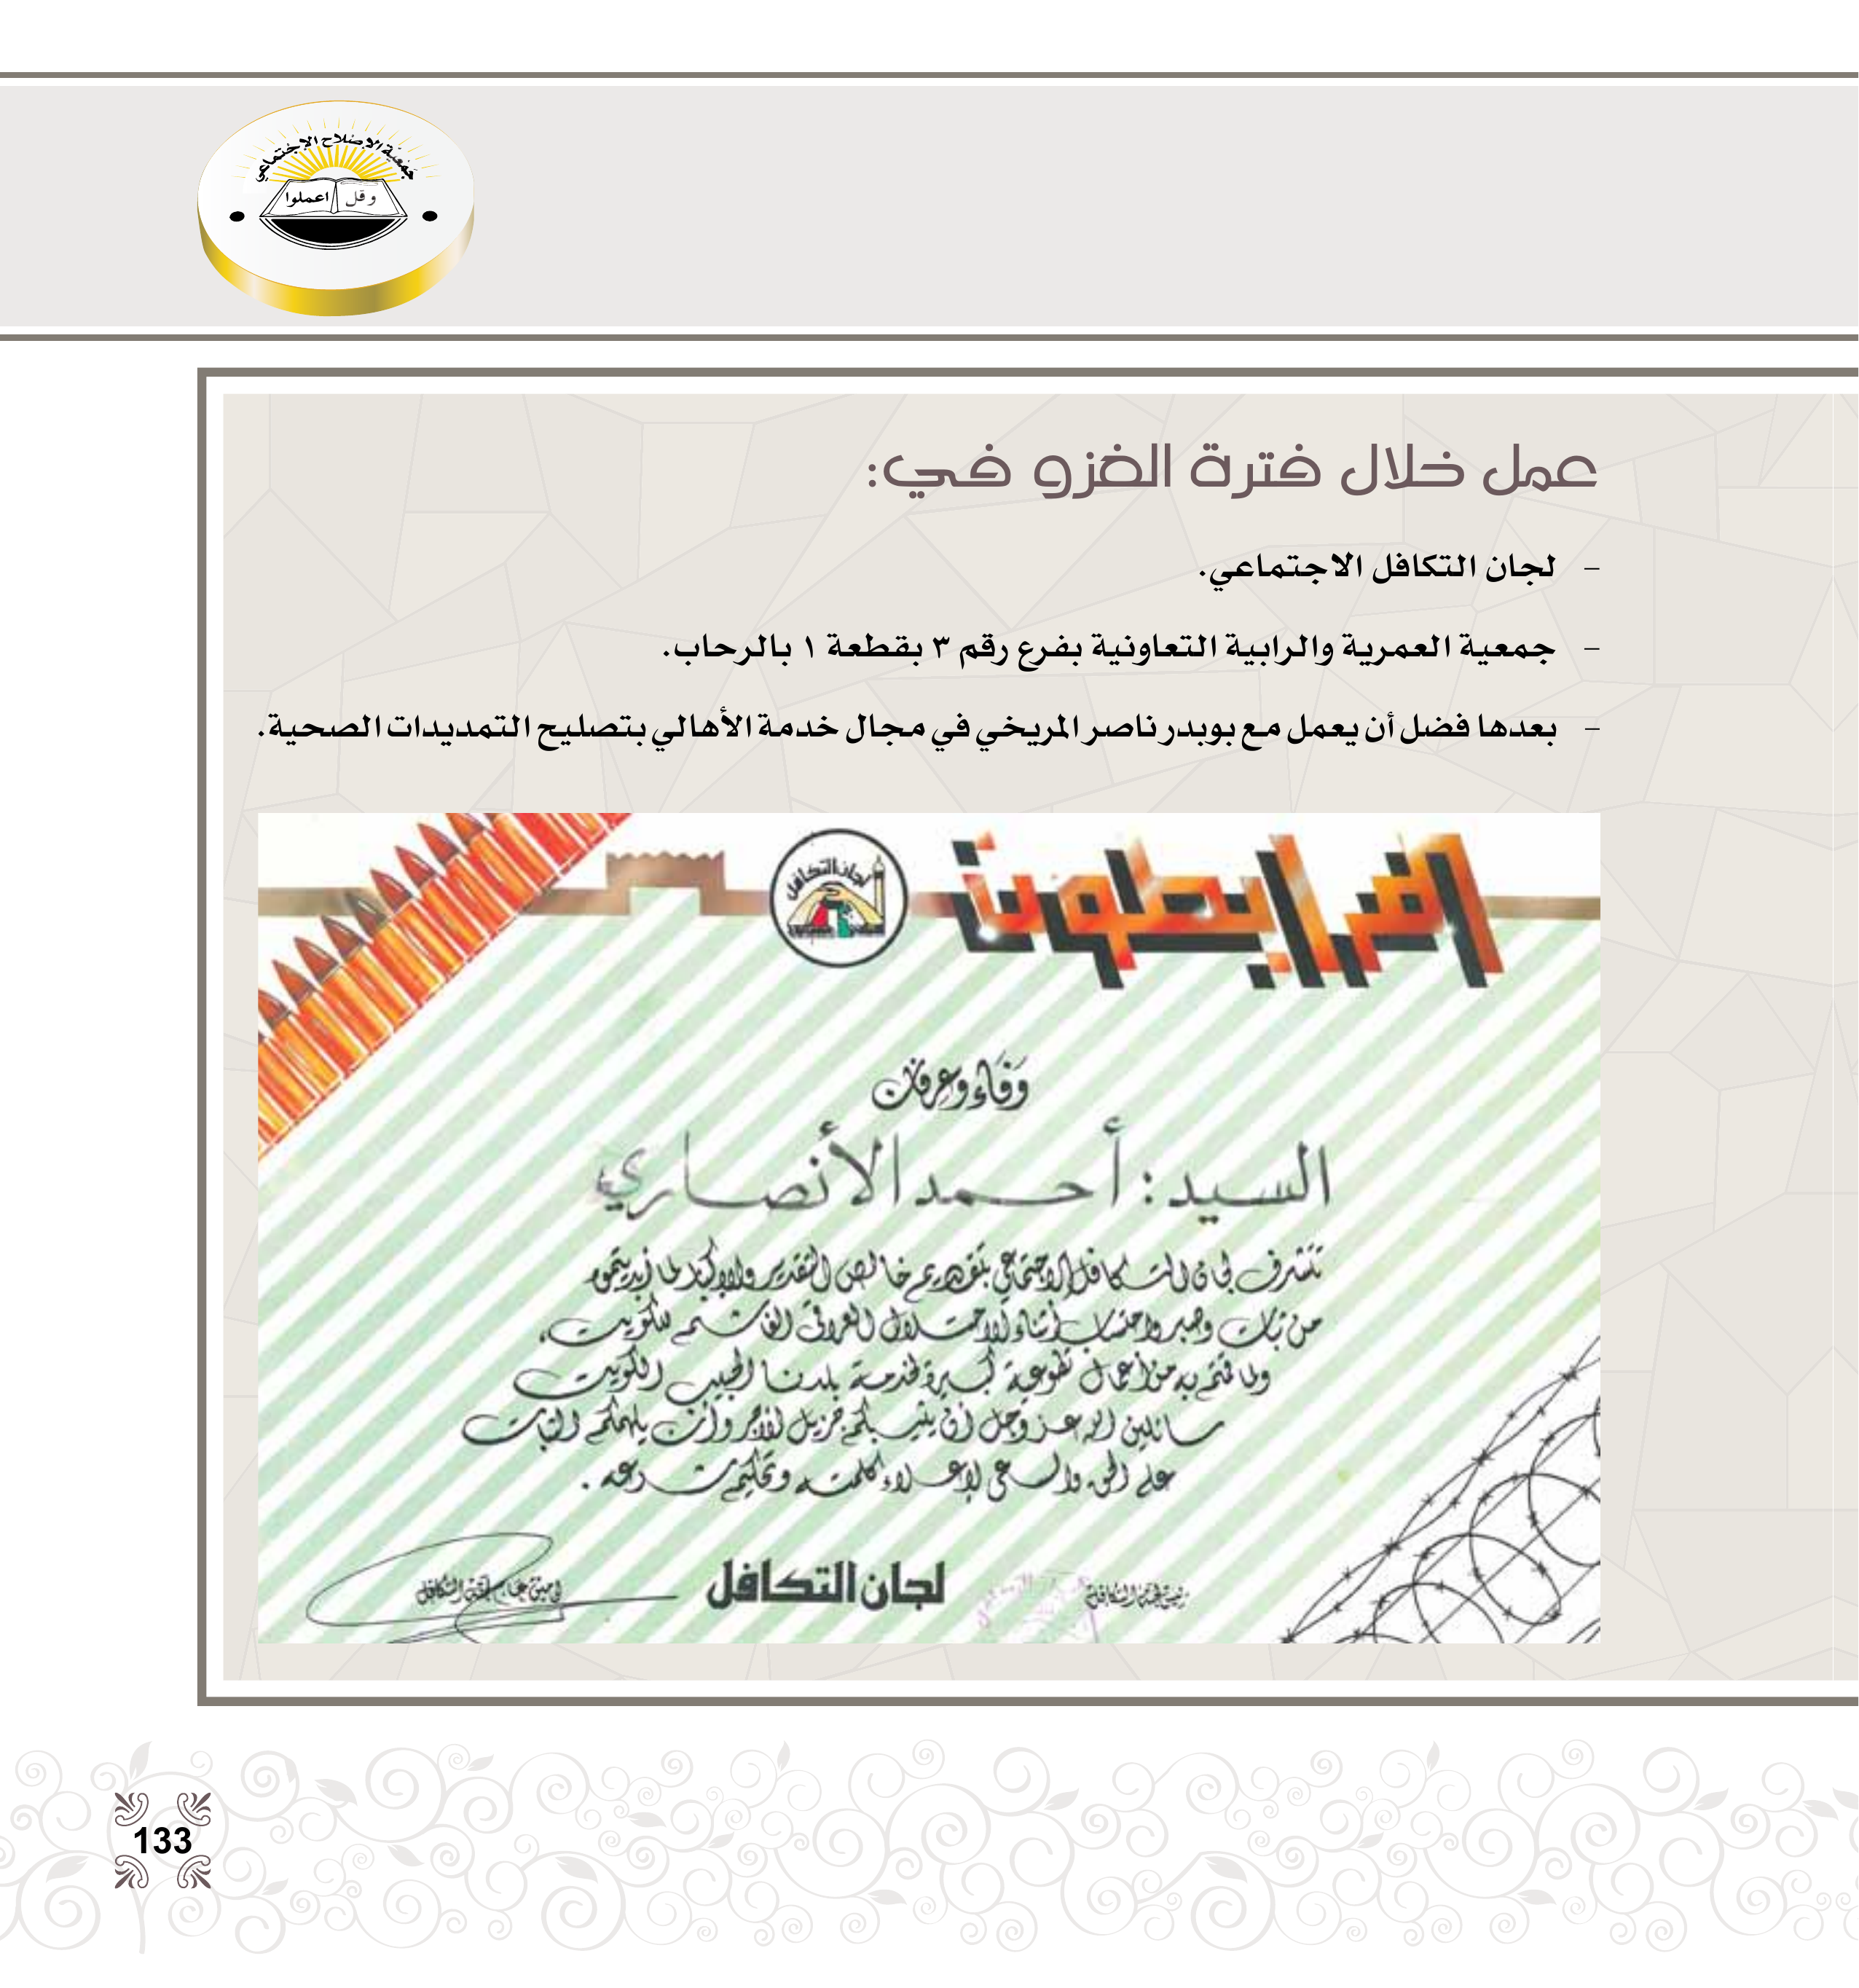 جمعية الإصلاح الاجتماعي
وقل اعملوا
عمل خلال فترة الغزو في:
- لجان التكافل الاجتماعي.
- جمعية العمرية والرابية التعاونية بفرع رقم ٣ بقطعة ١ بالرحاب.
- بعدها فضل أن يعمل مع بوبدر ناصر المريخي في مجال خدمة الأهالي بتصليح التمديدات الصحية.
المرابطون
لجان التكافل
وَفَاء وعرفان
السيد : أحمد الأنصاري
تتشرف لجان التكافل الاجتماعي بتقديم خالص التقدير والإكبار لما أبديتموه
من ثبات وصبر واحتساب أثناء الاحتلال العراقي الغاشم للكويت،
ولما قمتم به من أعمال تطوعية كبيرة لخدمة بلدنا الحبيب الكويت
سائلين الله عز وجل أن يثيبكم جزيل الأجر وأن يلهمكم الثبات
على الحق والسعي لإعلاء كلمته وتحكيم شرعه .
رئيس لجنة التكافل
لجان التكافل
أمين عام لجنة التكافل
133